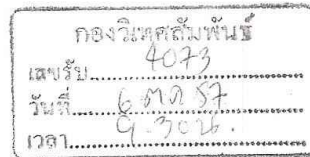 กองวิเทศสัมพันธ์
เลขรับ 4073
วันที่ 6 ต.ค. 57
เวลา 9.30 น.